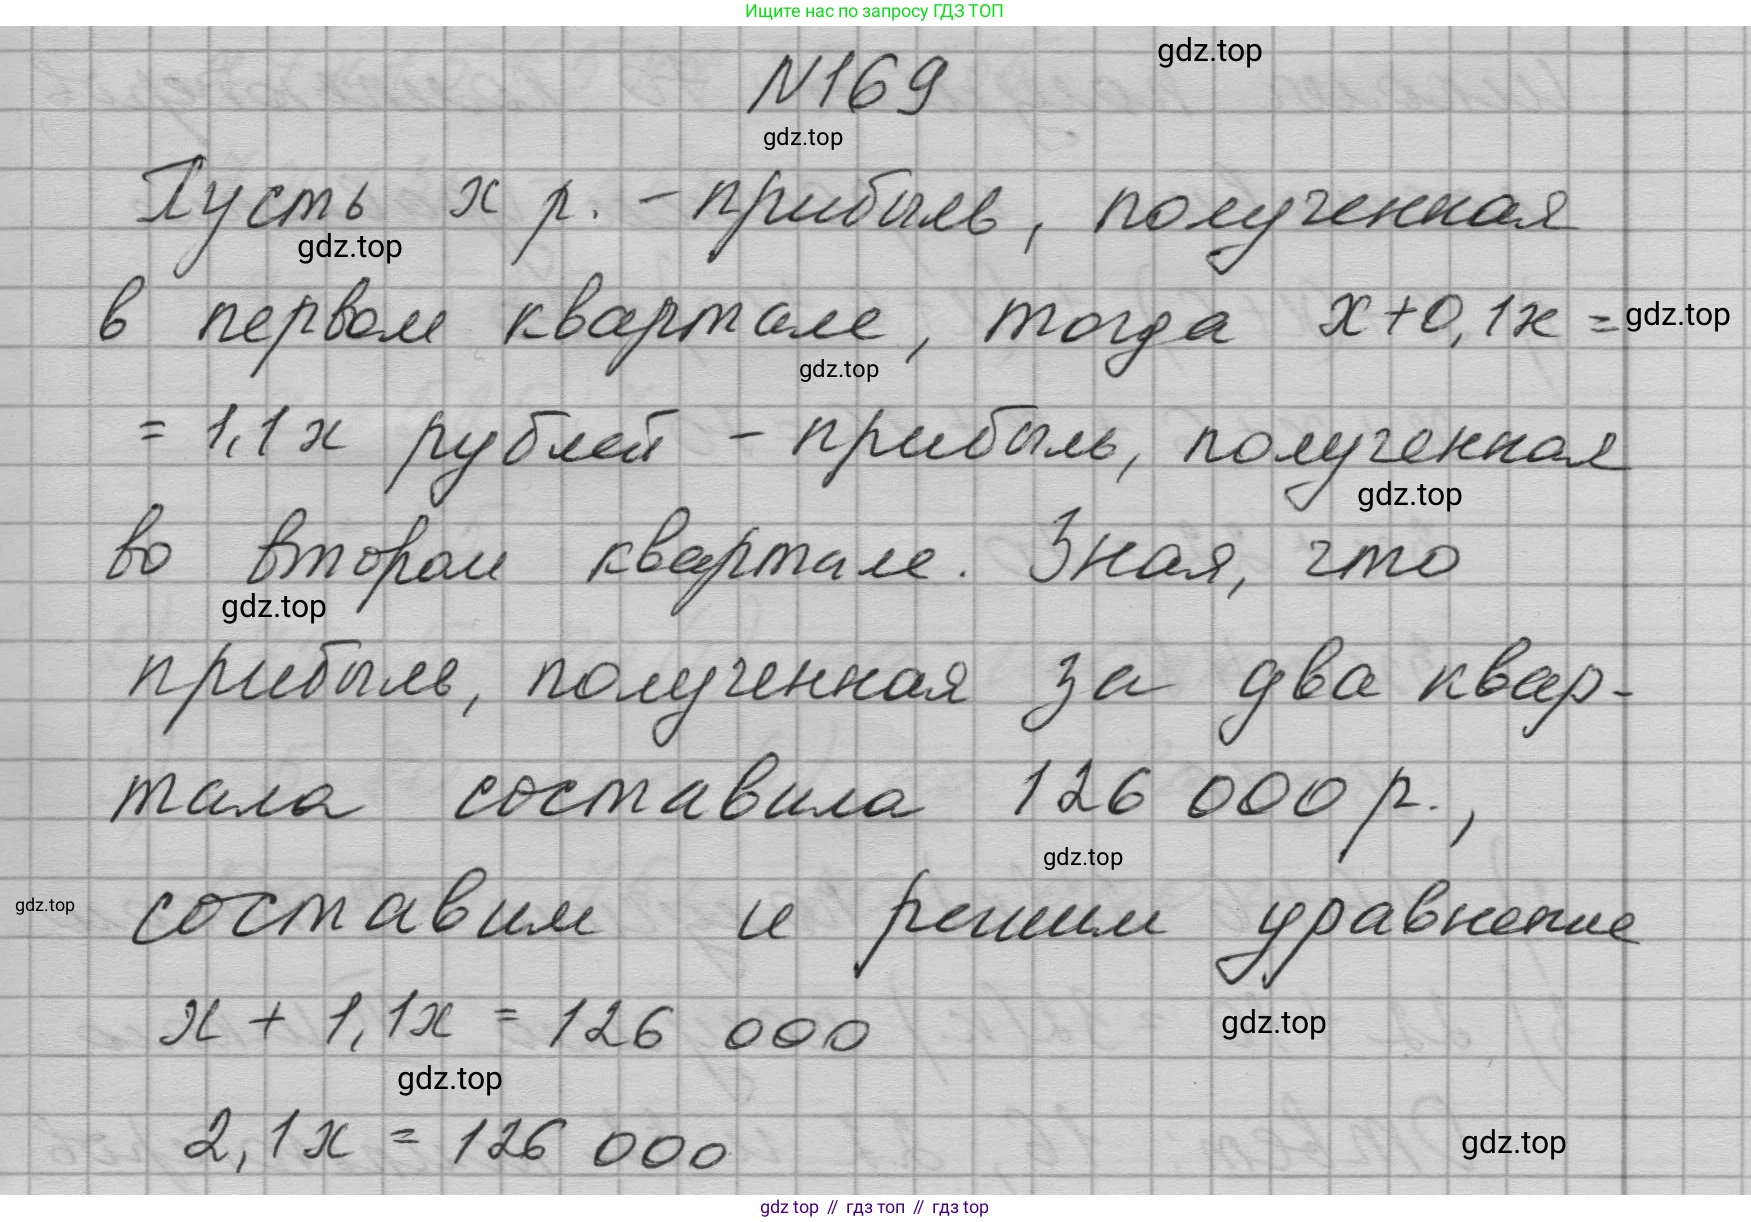 Ищите нас по запросу ГДЗ ТОП
gdz.top
N169
gdz.top
Пусть x р. – прибыль, полученная
gdz.top
в первом квартале, тогда x+0,1x =
gdz.top
gdz.top
= 1,1x рублей – прибыль, полученная
gdz.top
во втором квартале. Зная, что
gdz.top
прибыль, полученная за два квар-
тала составила 126 000 р.,
gdz.top
gdz.top
составим и решим уравнение
x + 1,1x = 126 000
gdz.top
gdz.top
2,1x = 126 000
gdz.top
gdz top // гдз топ // gdz top